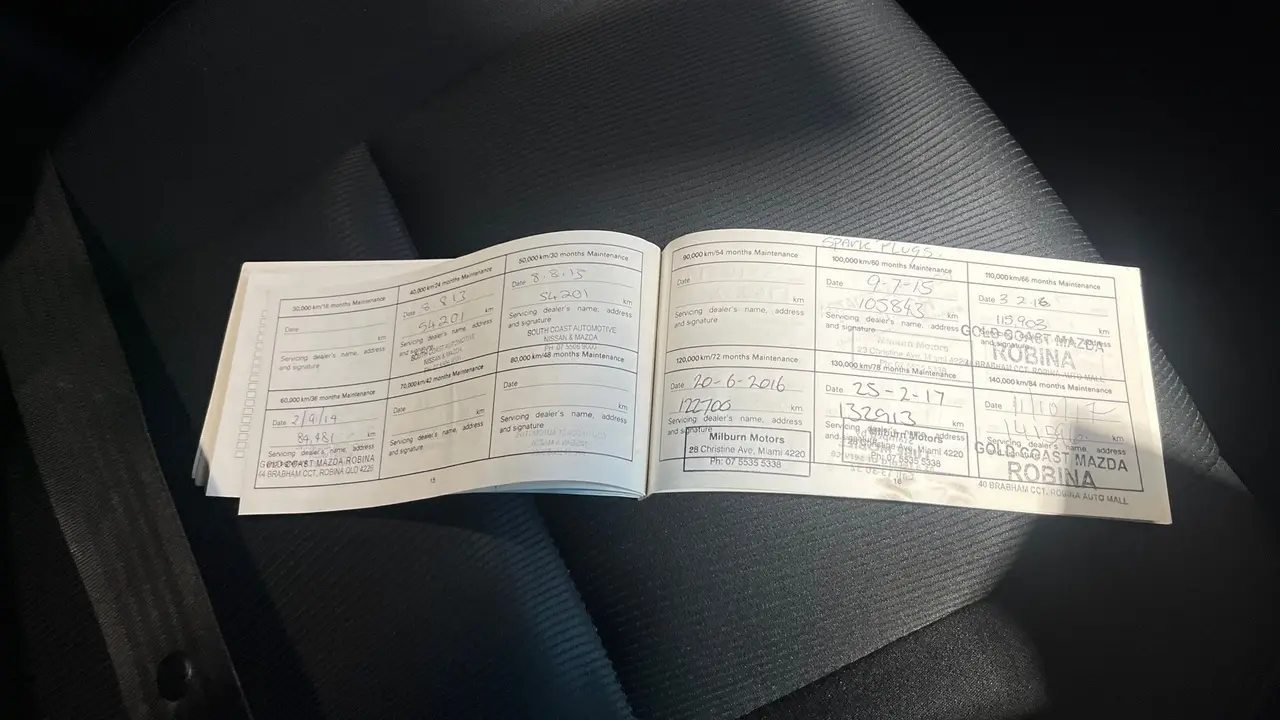 30,000 km/18 months Maintenance
Date
km
Servicing dealer's name, address
and signature
40,000 km/24 months Maintenance
Date 8.8.13
54201 km
Servicing dealer's name, address
and signature
SOUTH COAST AUTOMOTIVE
NISSAN & MAZDA
50,000 km/30 months Maintenance
8.8.13
54201 km
Servicing dealer's name, address
and signature
SOUTH COAST AUTOMOTIVE
NISSAN & MAZDA
PH: 07 5506 9000
60,000 km/36 months Maintenance
Date 2/9/14
84,481 km
Servicing dealer's name, address
GOLD COAST MAZDA ROBINA
44 BRABHAM CCT, ROBINA QLD 4226
70,000 km/42 months Maintenance
Date
km
Servicing dealer's name, address
and signature
80,000 km/48 months Maintenance
Date
km
Servicing dealer's name, address
and signature
15
SPARK PLUGS.
90,000 km/54 months Maintenance
Date
km
Servicing dealer's name, address
and signature
100,000 km/60 months Maintenance
Date 9-7-15
105843 km
Servicing dealer's name, address
and signature
Milburn Motors
28 Christine Ave, Miami 4220
Ph: 07 5535 5338
110,000 km/66 months Maintenance
Date 3 2 16
115903 km
Servicing dealer's name, address
and signature
GOLD COAST MAZDA
ROBINA
BRABHAM CCT, ROBINA AUTO MALL
120,000 km/72 months Maintenance
Date 20-6-2016
122700 km
Servicing dealer's name, address
and signature
Milburn Motors
28 Christine Ave, Miami 4220
Ph: 07 5535 5338
130,000 km/78 months Maintenance
Date 25-2-17
132913 km
Servicing dealer's name, address
and signature
Milburn Motors
Ave, Miami 4220
Ph: 07 5535 5338
140,000 km/84 months Maintenance
Date 11/10/17
km
Servicing dealer's name, address
and signature
GOLD COAST MAZDA
ROBINA
40 BRABHAM CCT, ROBINA AUTO MALL
16